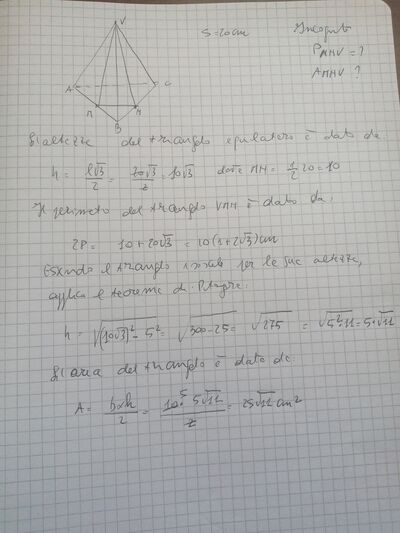 V
S=20cm
Incognite
P MNV = ?
A MNV ?
A
C
M
N
B
L'altezza del triangolo equilatero è dato da
h = l√3/2 = 20√3/2 = 10√3 dove MN = 1/2 20 = 10
Il perimetro del triangolo VMN è dato da,
2P = 10+20√3 = 10(1+2√3)cm
Essendo il triangolo isoscele per le sue altezze,
applico il teorema di Pitagora.
h = √(10√3)² - 5² = √300-25 = √275 = √5²·11 = 5·√11
L'area del triangolo è dato da:
A = b×h/2 = 10·5√11/2 = 25√11 cm²